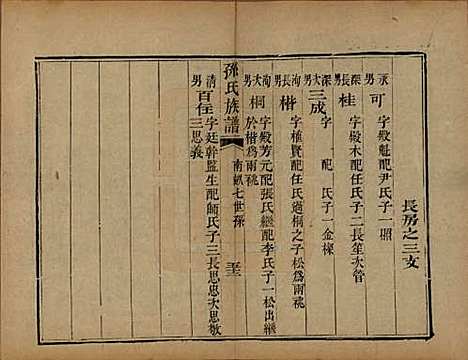 長房之三支
永男 可 字殿魁配尹氏子一照
深長男 桂 字殿木配任氏子二長笙次管
深次男 三成 字 配 氏子一金樑
洵長男 楷 字種賢配任氏過桐之子松為兩祧
洵次男 桐 字殿芳元配張氏繼配李氏子一松出繼
於楷為兩祧
孫氏族譜 南畝七世孫 五三
清男 百住 字廷幹監生配師氏子三長思忠次思敬
三思義